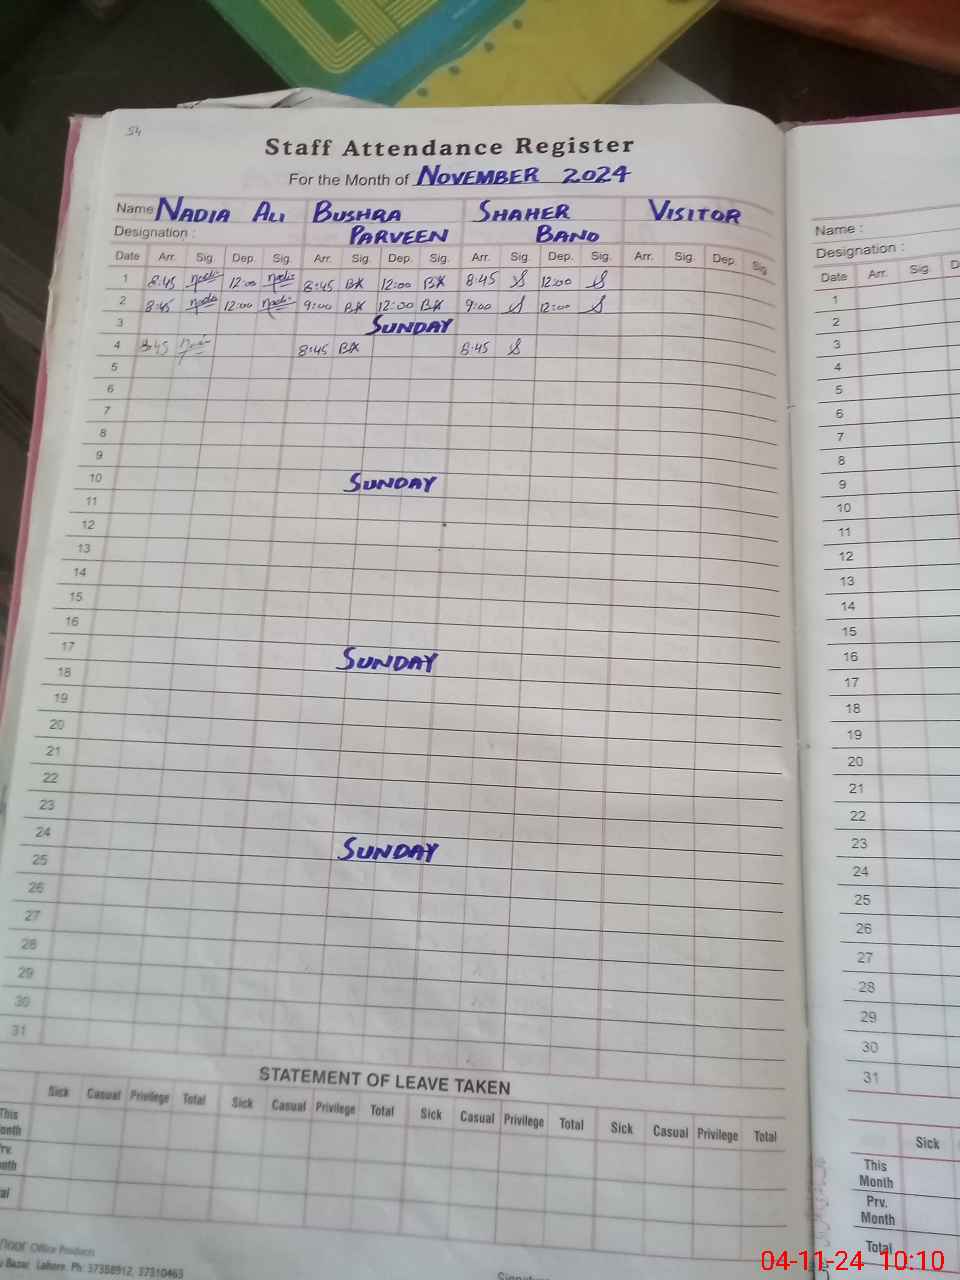 54
Staff Attendance Register
For the Month of NOVEMBER 2024
Name NADIA ALI BUSHRA SHAHER VISITOR
Designation : PARVEEN BANO
Date Arr. Sig. Dep. Sig. Arr. Sig. Dep. Sig. Arr. Sig. Dep. Sig. Arr. Sig. Dep. Sig
1 8:45 nadia 12:00 nadia 8:45 12:00 8:45 12:00
2 8:45 nadia 12:00 nadia 9:00 12:00 9:00 12:00
3 SUNDAY
4 8:45 8:45 8:45
5
6
7
8
9
10 SUNDAY
11
12
13
14
15
16
17 SUNDAY
18
19
20
21
22
23
24 SUNDAY
25
26
27
28
29
30
31
STATEMENT OF LEAVE TAKEN
Sick Casual Privilege Total Sick Casual Privilege Total Sick Casual Privilege Total Sick Casual Privilege Total
This
onth
rv.
nth
al
Office Products
Bazar, Lahore. Ph: 37358912, 37310463
Name :
Designation :
Date Arr. Sig. D
1
2
3
4
5
6
7
8
9
10
11
12
13
14
15
16
17
18
19
20
21
22
23
24
25
26
27
28
29
30
31
Sick
This
Month
Prv.
Month
Total
04-11-24 10:10